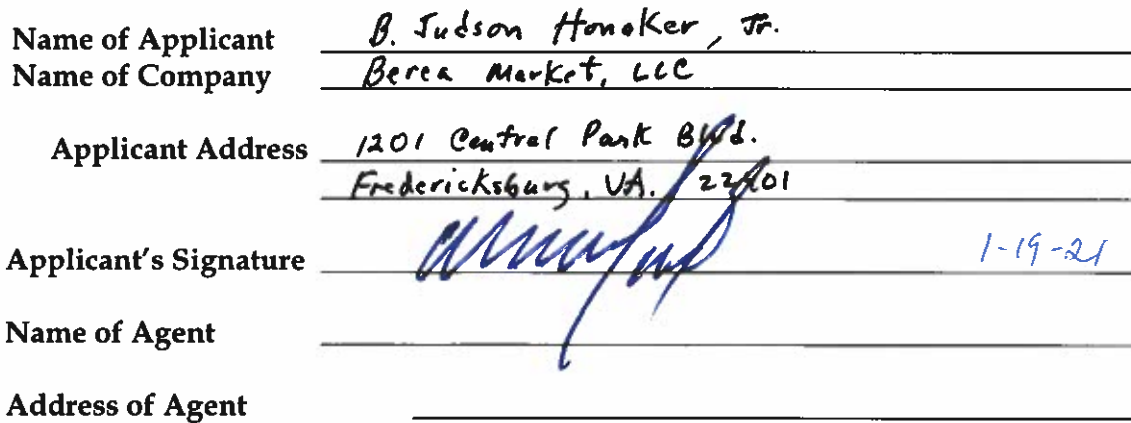 Name of Applicant B. Judson Honaker, Jr.
Name of Company Berea Market, LLC
Applicant Address 1201 Central Park Blvd.
Fredericksburg, VA. 22401
Applicant's Signature 1-19-21
Name of Agent
Address of Agent